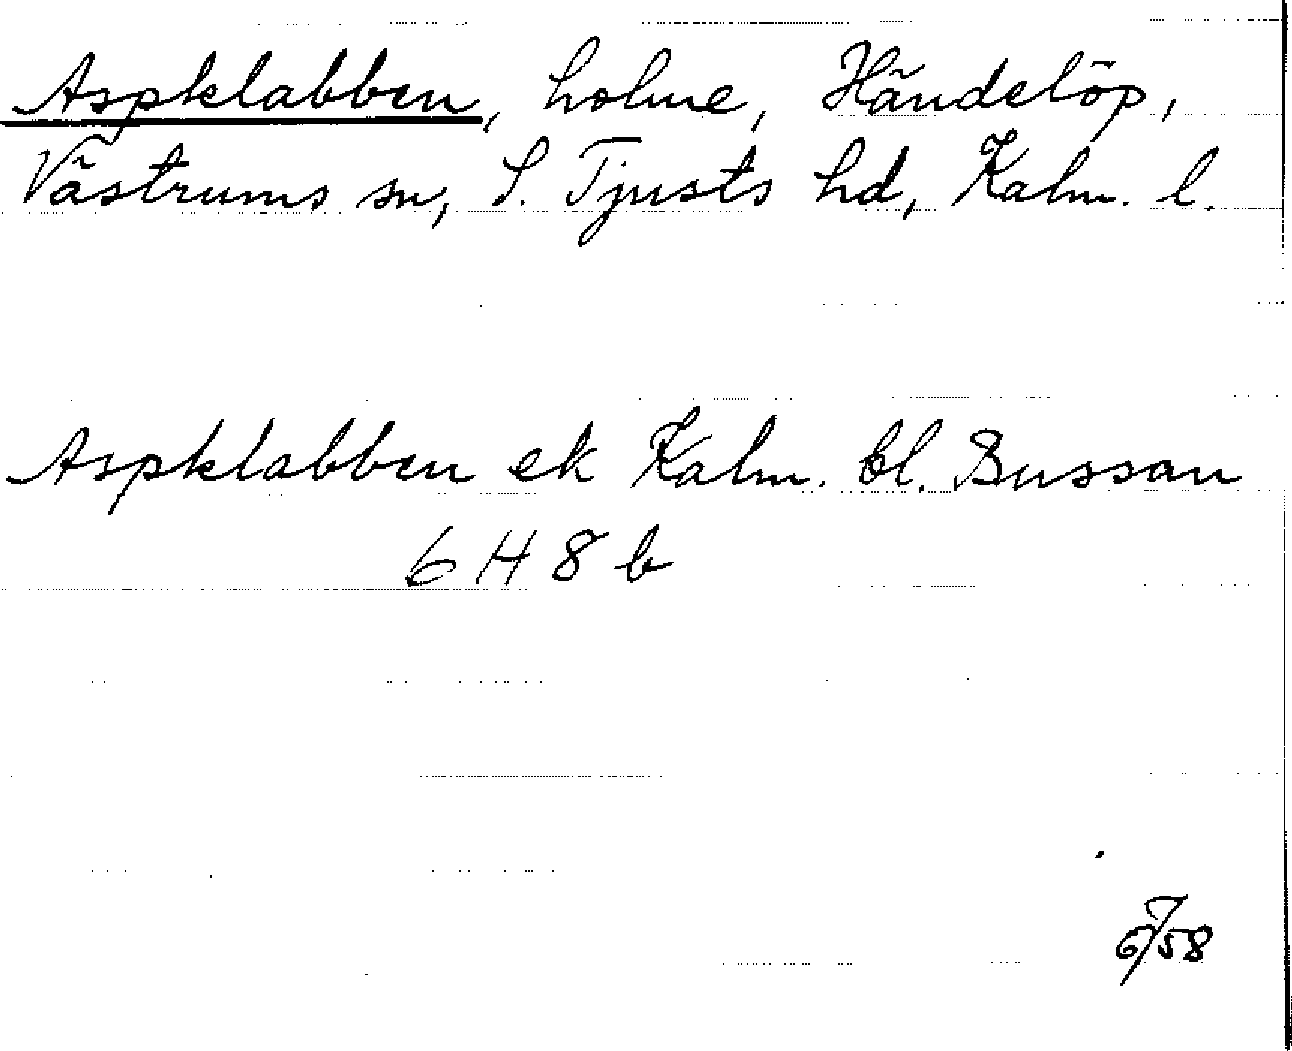 Aspklabben, holme, Händelöp,
Västrums sn, S. Tjusts hd, Kalm. l.
Aspklabben ek Kalm. bl. Bussan
6 H 8 b